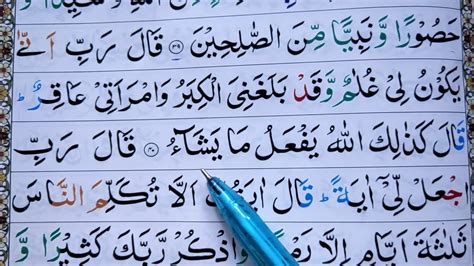 حَصُوْرًا وَّنَبِيًّا مِّنَ الصّٰلِحِيْنَ ۝۳۹ قَالَ رَبِّ اَنّٰى
يَكُوْنُ لِىْ غُلٰمٌ وَّقَدْ بَلَغَنِىَ الْكِبَرُ وَامْرَاَتِىْ عَاقِرٌ ؕ
قَالَ كَذٰلِكَ اللّٰهُ يَفْعَلُ مَا يَشَآءُ ۝۴۰ قَالَ رَبِّ
جْعَلْ لِّىْٓ اٰيَةً ؕ قَالَ اٰيَتُكَ اَلَّا تُكَلِّمَ النَّاسَ
ثَلٰثَةَ اَيَّامٍ اِلَّا رَمْزًا ؕ وَاذْكُرْ رَّبَّكَ كَثِيْرًا وَّ